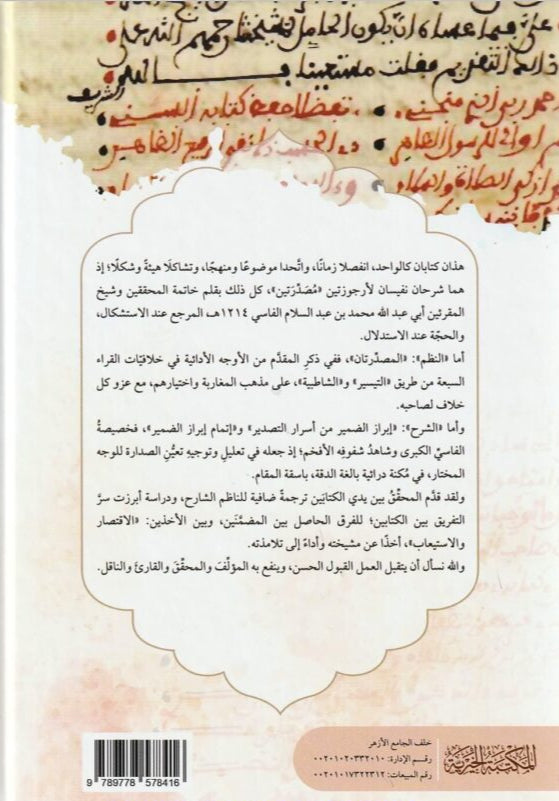 هذان كتابان كالواحد، انفصلا زمانًا، واتَّحدا موضوعًا ومنهجًا، وتشاكلَا هيئةً وشكلًا؛ إذ
هما شرحان نفيسان لأرجوزتين «مُصَدَّرَتين»، كل ذلك بقلم خاتمة المحققين وشيخ
المقرئين أبي عبد الله محمد بن عبد السلام الفاسي ١٢١٤هـ، المرجع عند الاستشكال،
والحجّة عند الاستدلال.
أما «النظم»: «المصدّرتان»، ففي ذكرِ المقدَّم من الأوجه الأدائية في خلافيّات القراء
السبعة من طريق «التيسير» و«الشاطبية»، على مذهب المغاربة واختيارهم، مع عزو كل
خلاف لصاحبه.
وأما «الشرح»: «إبراز الضمير من أسرار التصدير» و«إتمام إبراز الضمير»، فخصيصةُ
الفاسيِّ الكبرى وشاهدُ شفوفِه الأفخم؛ إذ جعله في تعليلِ وتوجيهِ تعيُّنِ الصدارة للوجه
المختار، في مُكنة درائية بالغة الدقة، باسقة المقام.
ولقد قدَّم المحقّقُ بين يدي الكتابَين ترجمةً ضافية للناظم الشارح، ودراسة أبرزت سرَّ
التفريق بين الكتابين؛ للفرق الحاصل بين المضمَّنَين، وبين الأخذين: «الاقتصار
والاستيعاب»، أخذًا عن مشيخته وأداءً إلى تلامذته.
والله نسأل أن يتقبل العمل القبول الحسن، وينفع به المؤلِّفَ والمحقِّقَ والقارئَ والناقل.
المكتبة الخيرية
خلف الجامع الأزهر
رقم الإدارة: ٠٠٢٠١٠٢٠٣٣٢٠١٠
رقم المبيعات: ٠٠٢٠١٠١٧٣٢٢٣١٢
9 789778 578416